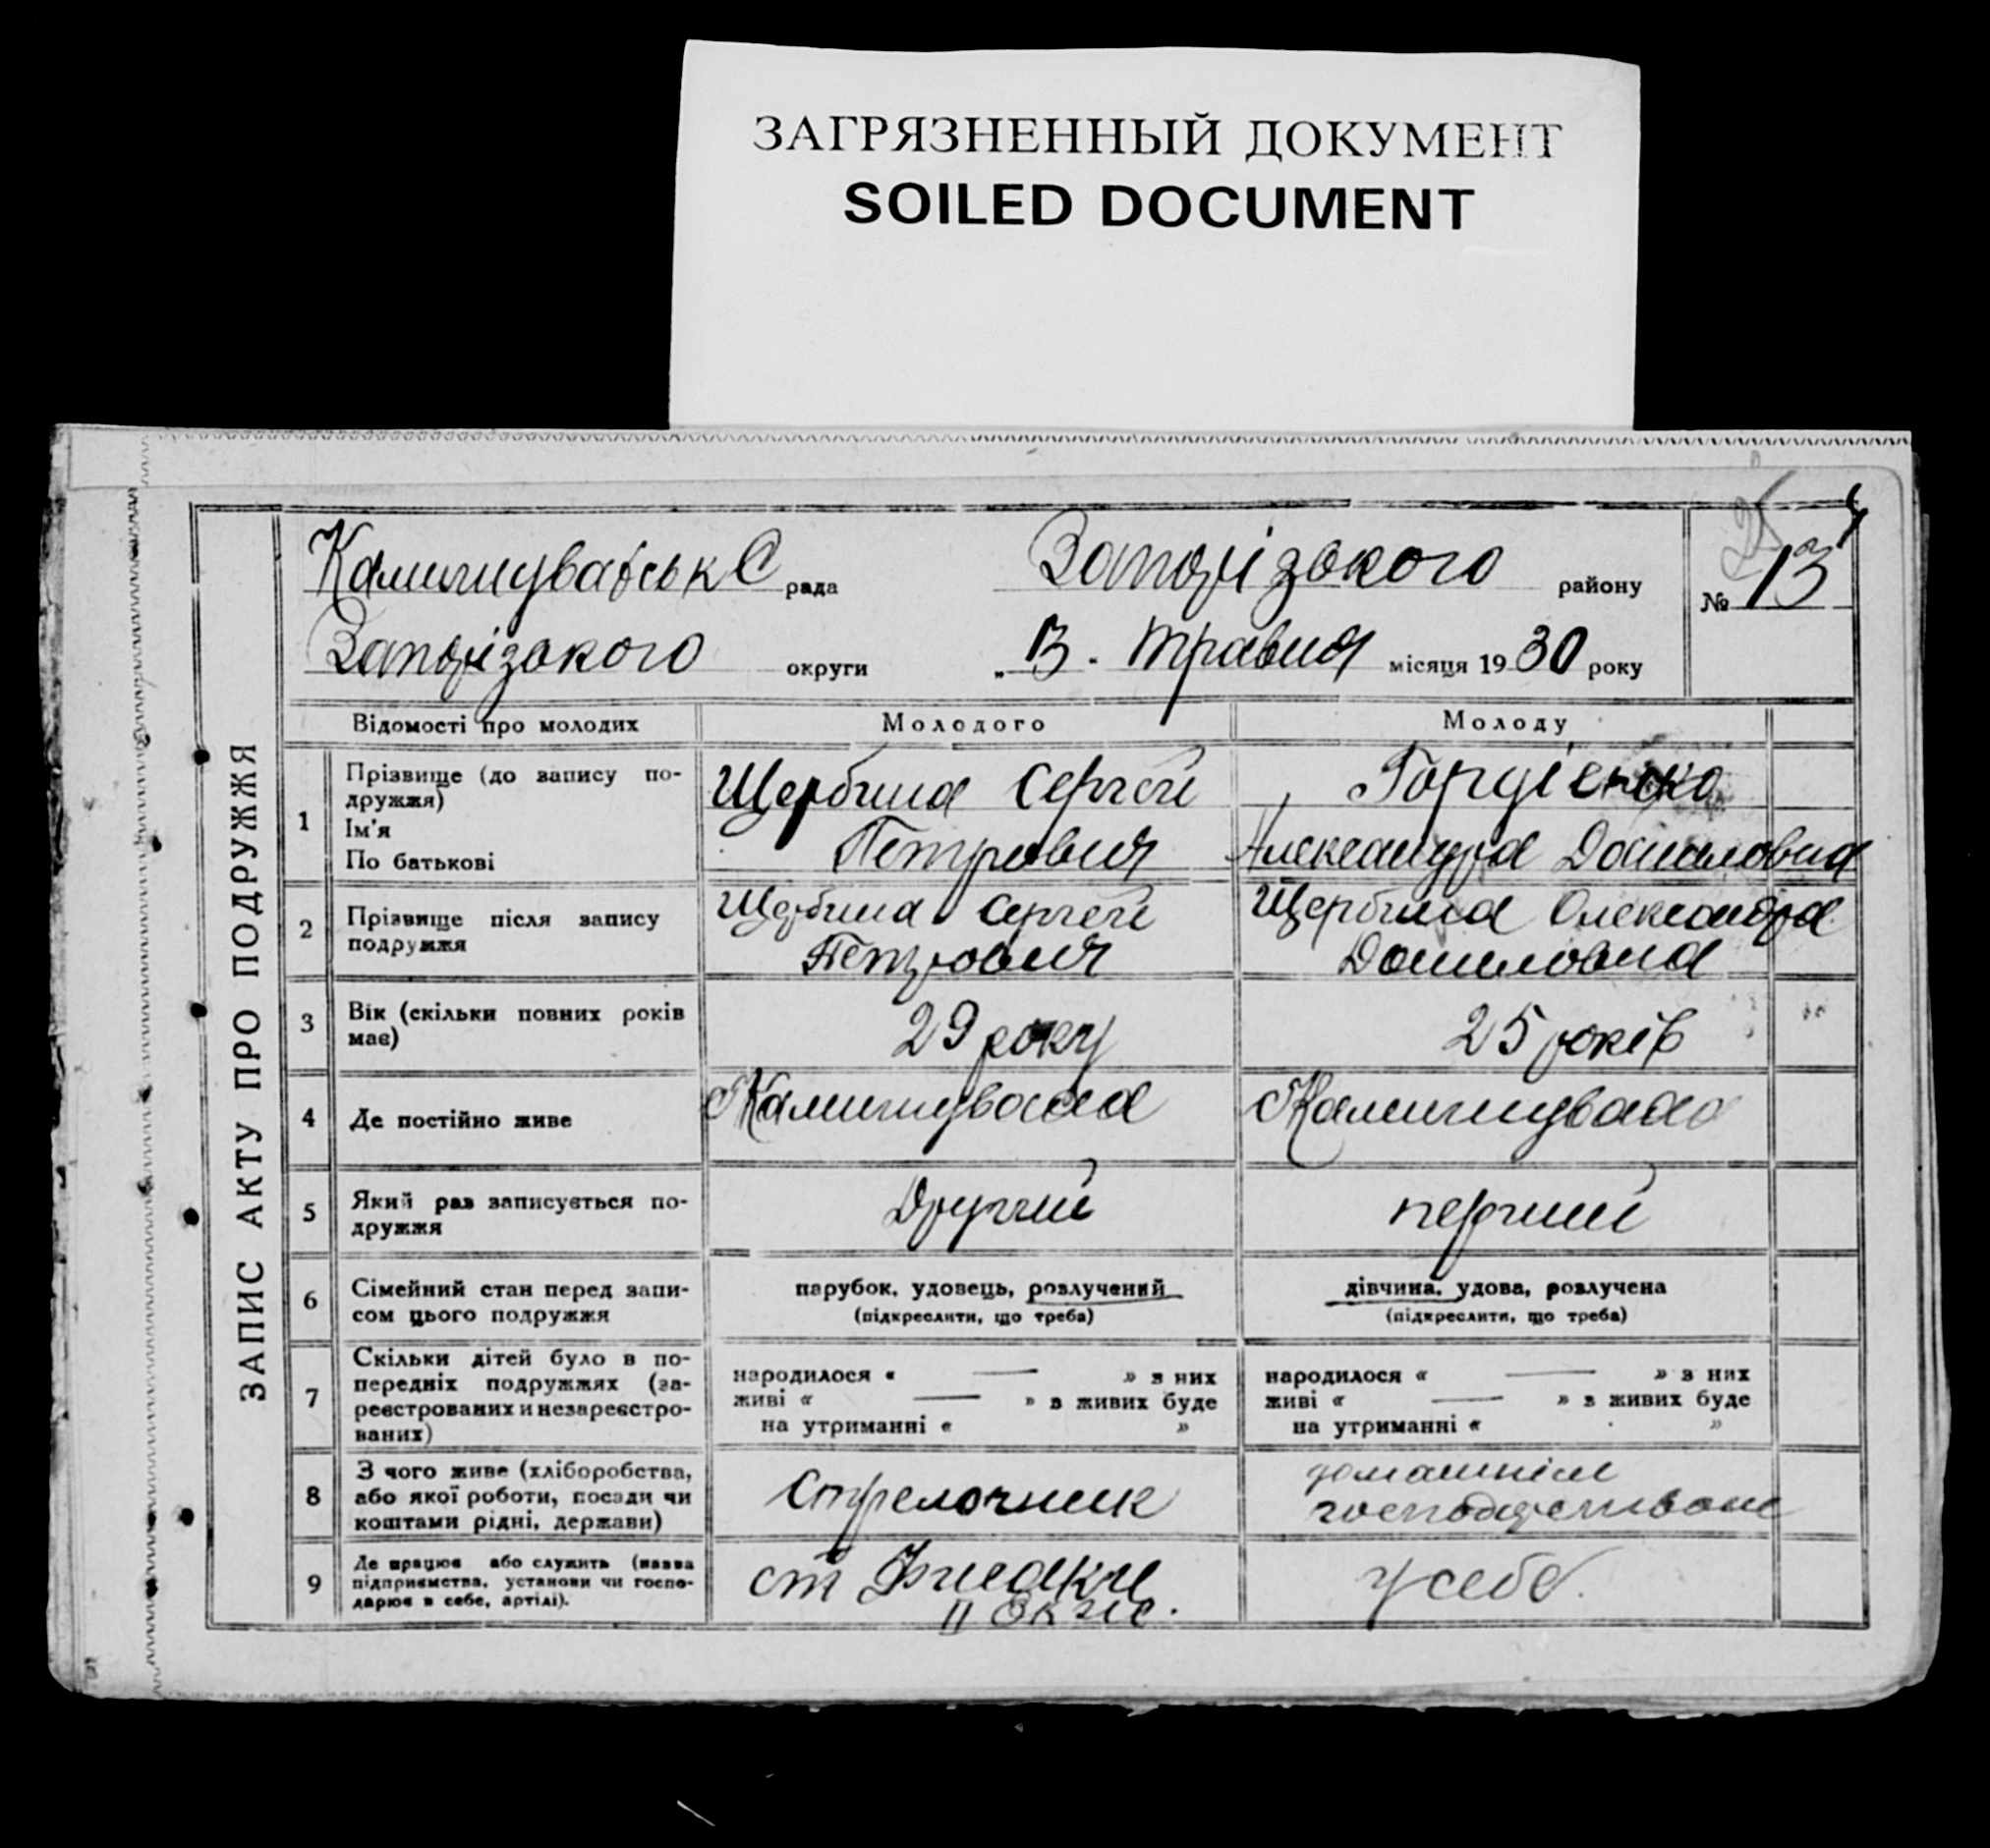 ЗАГРЯЗНЕННЫЙ ДОКУМЕНТ
SOILED DOCUMENT
ЗАПИС АКТУ ПРО ПОДРУЖЖЯ
рада Запорізького району № 13
Запорізького округи „ 13 . травня місяця 1930 року
Відомості про молодих Молодого Молоду
1 Прізвище (до запису по-
дружжя)
Ім'я
По батькові
Щербина Сергей
Петрович
Гордіенко
Александра Даниловна
2 Прізвище після запису
подружжя
Щербина Сергей
Петрович
Щербина Олександра
Даниловна
3 Вік (скільки повних років
має)
29 року
25 років
4 Де постійно живе
Камишуваха
Камишуваха
5 Який раз записується по-
дружжя
Другий
перший
6 Сімейний стан перед запи-
сом цього подружжя
парубок, удовець, розлучений
(підкреслити, що треба)
дівчина, удова, розлучена
(підкреслити, що треба)
7 Скільки дітей було в по-
передніх подружжях (за-
реєстрованих и незареєстро-
ваних)
народилося « — » з них
живі « — » з живих буде
на утриманні « »
народилося « — » з них
живі « — » з живих буде
на утриманні « »
8 З чого живе (хліборобства,
або якої роботи, посади чи
коштами рідні, держави)
Стрелочник
домашнім
9 Де працює або служить (назва
підприємства, установи чи госпо-
дарює в себе, артілі).
ст
II
у себе.